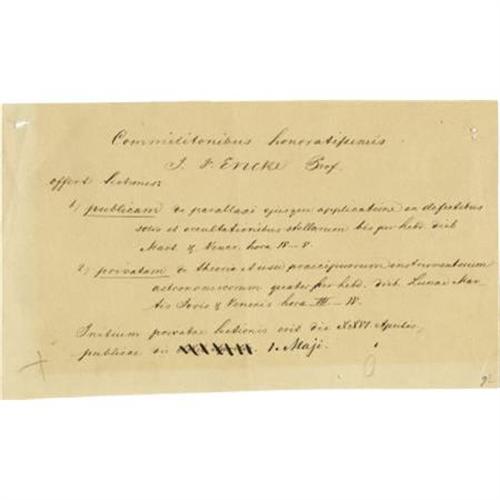 Commilitonibus honoratissimis
J. F. Encke Prof.
offert lectiones:
1) publicam de parallaxi ejusque applicatione ad defectibus
solis et occultationibus stellarum bis per hebd. dieb
Mart & Vener. hora
2) privatam de theoria et usu praecipuorum instrumentorum
astronomicorum quater per hebd. dieb. Lunae Mar-
tis Jovis & Veneris hora III-IV.
Initium privatae lectionis erit die XXVI Aprilis,
publicae die 1. Maji.